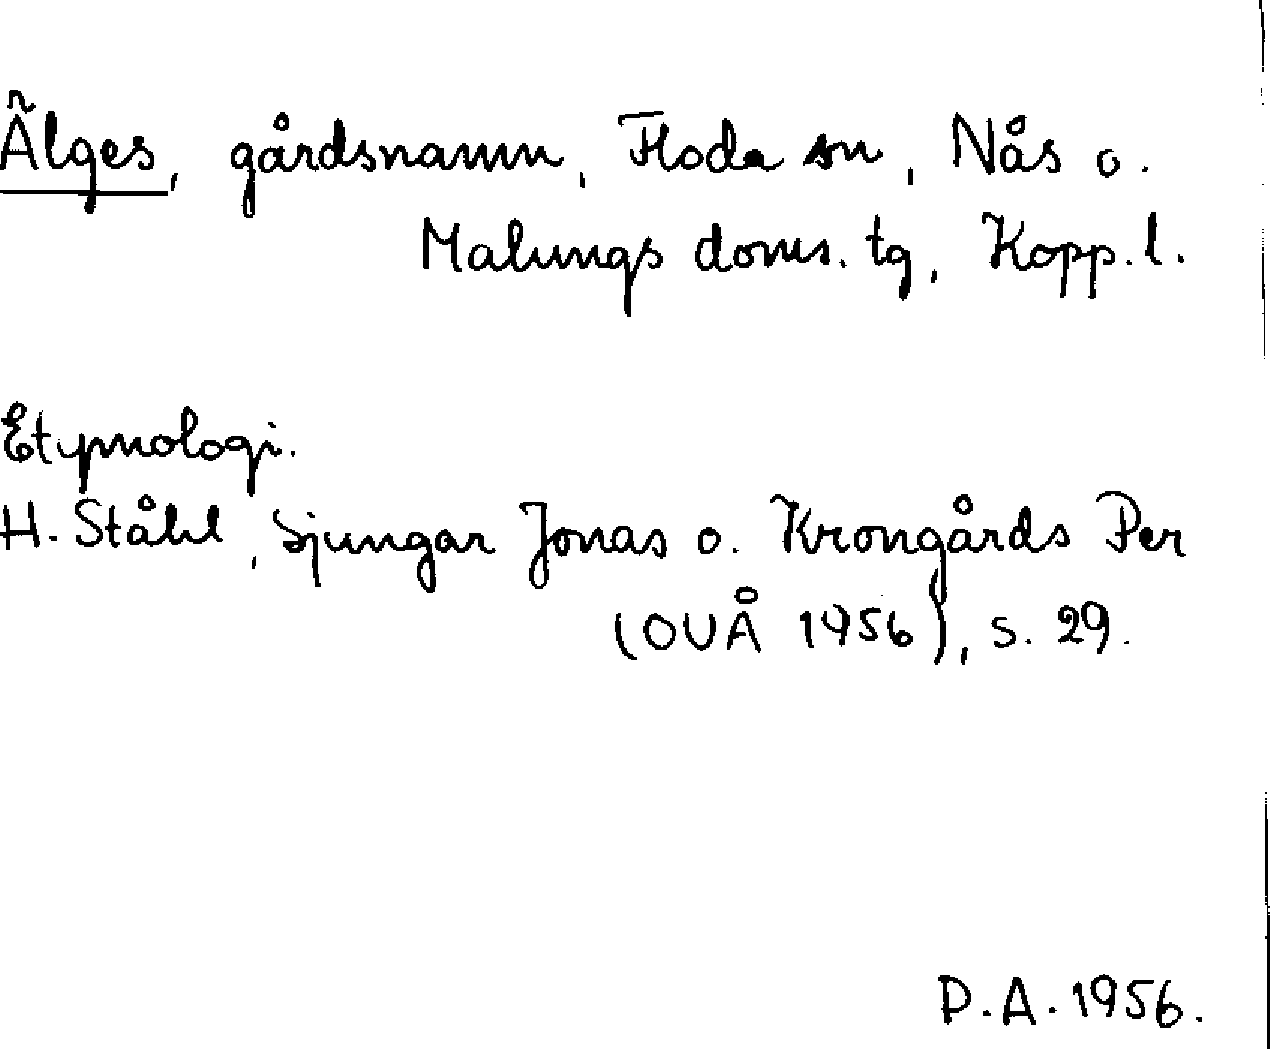 Älges, gårdsnamn, Floda sn, Nås o.
Malungs doms. tg, Kopp. l.
Etymologi.
H. Ståhl, Sjungar Jonas o. Krongårds Per
(OUÅ 1956), s. 29.
D.A. 1956.